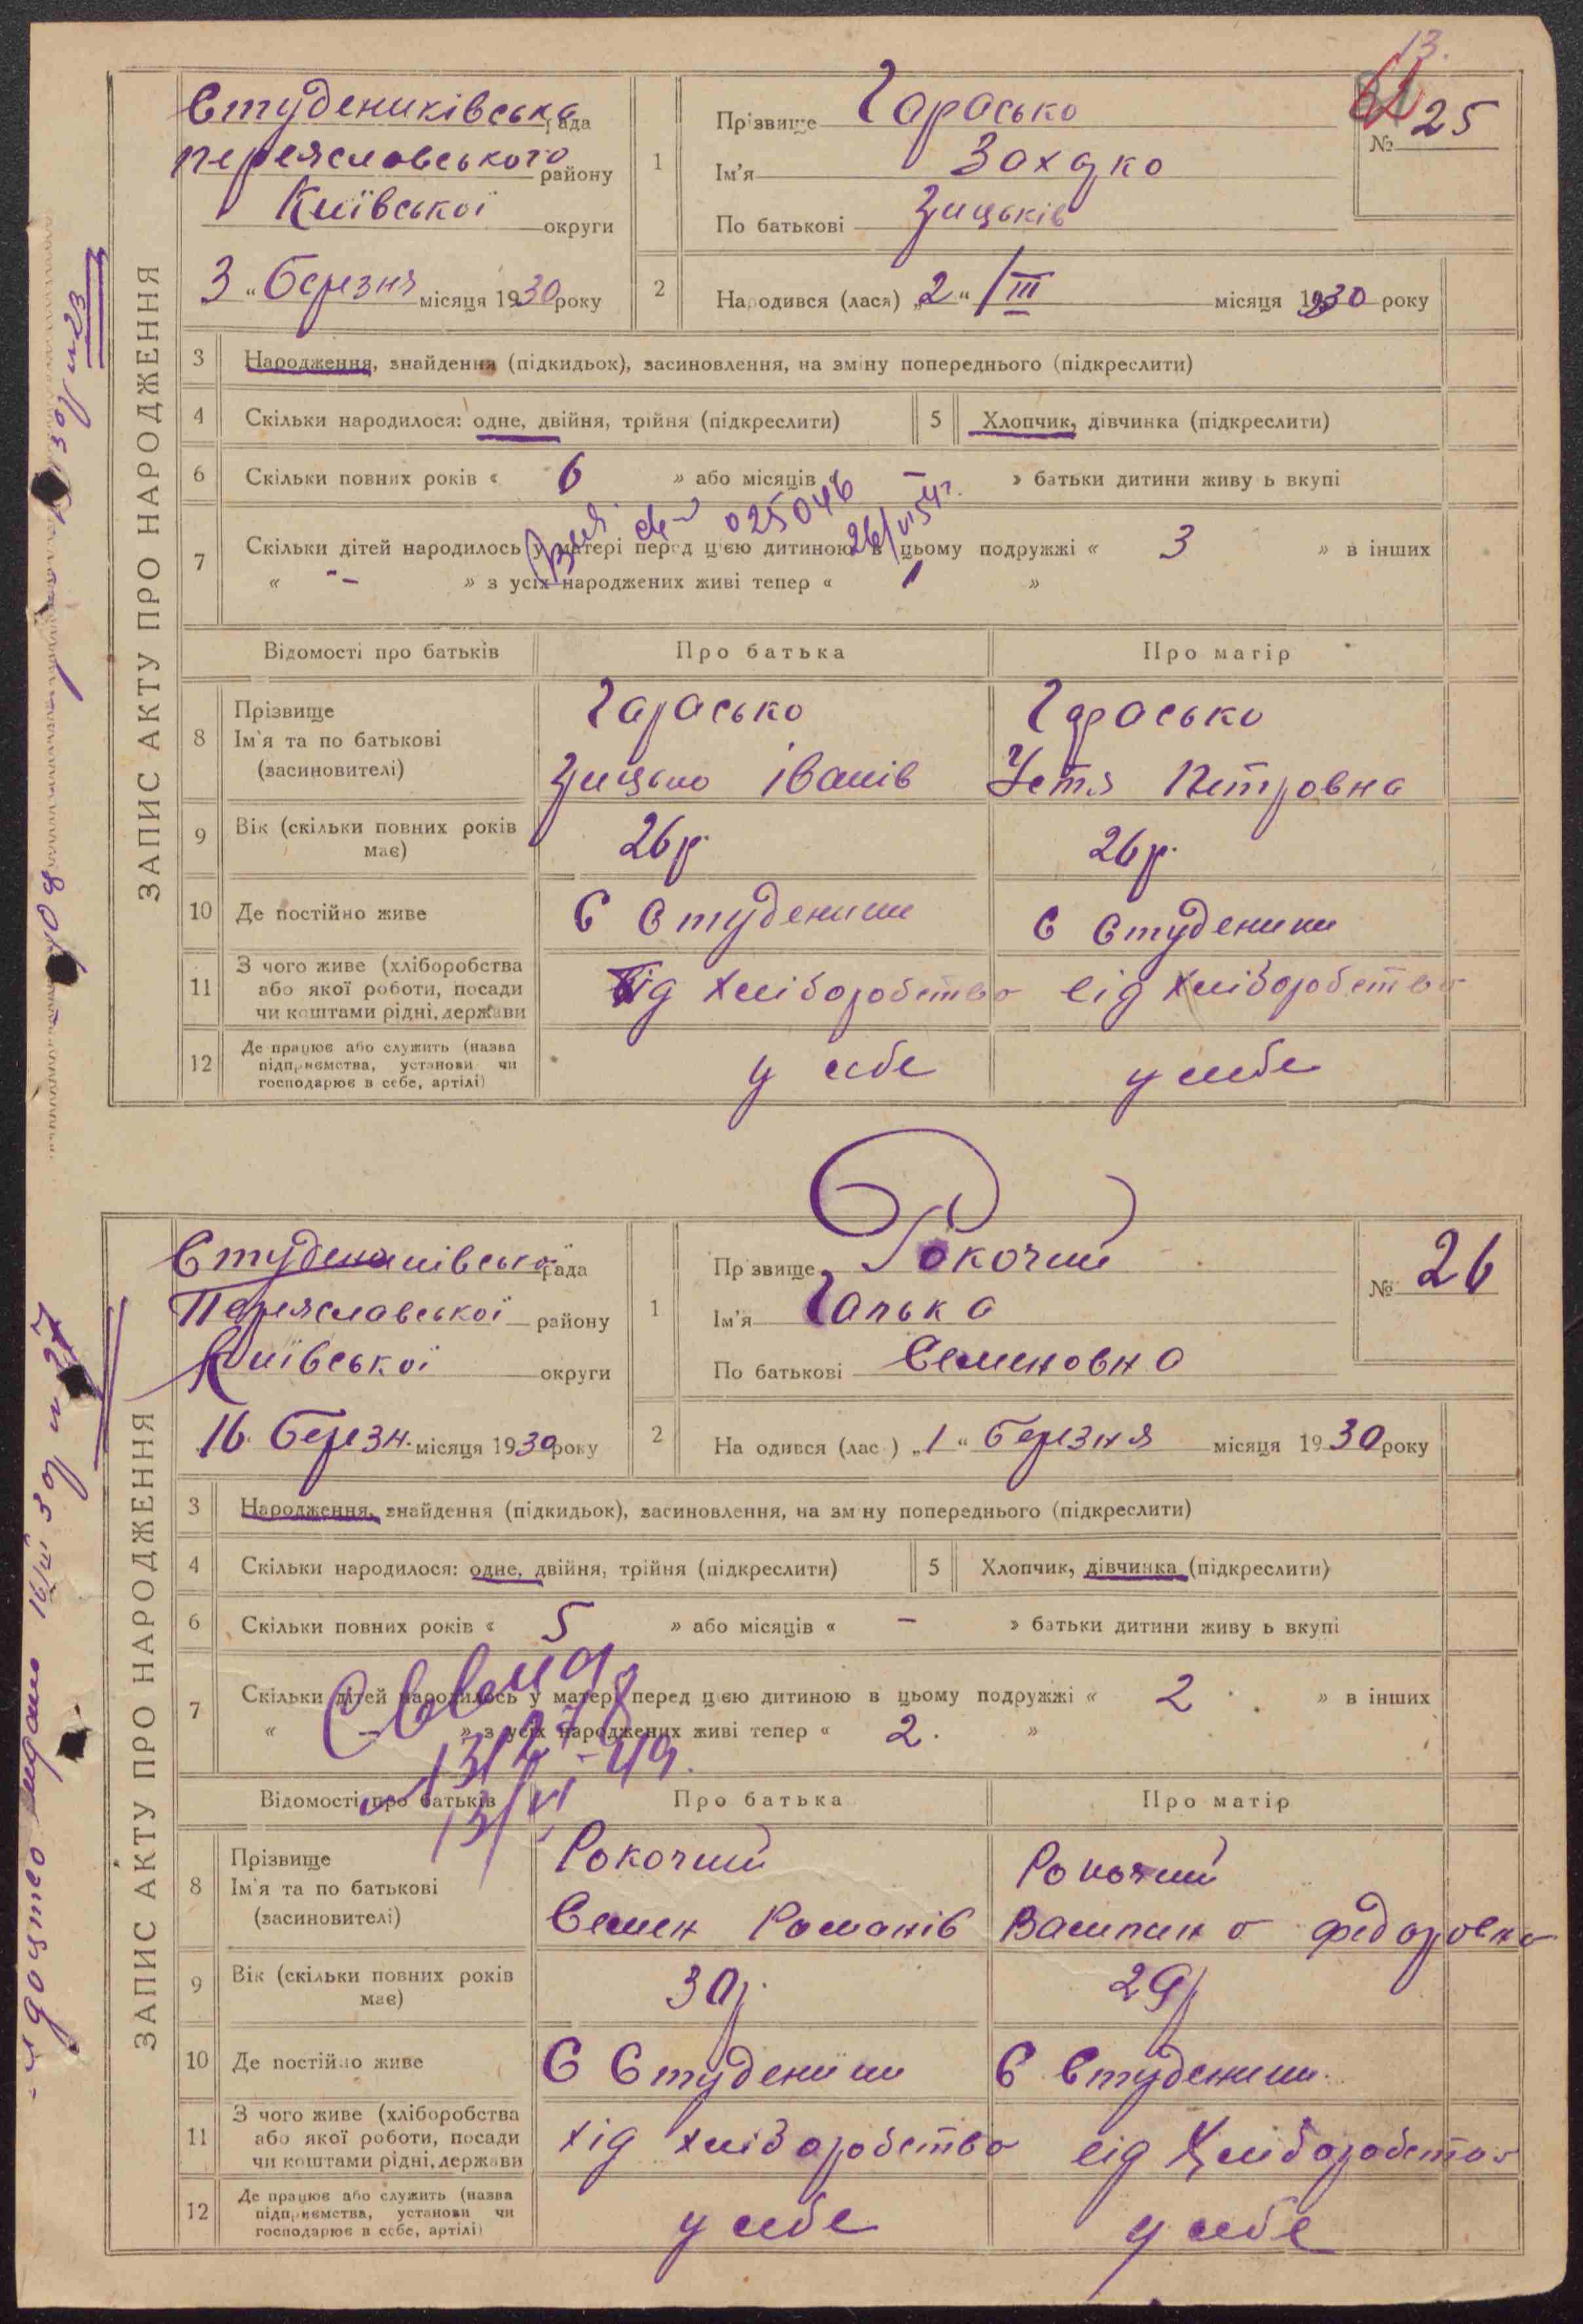 13.
ЗАПИС АКТУ ПРО НАРОДЖЕННЯ
Студениківська рада
Переяславського району
Київської округи
3 " Березня місяця 1930 року
1
Прізвище Гарасько
Ім'я Захарко
По батькові Грицьків
№ 25
2
Народився (лася) „2 " / III місяця 1930 року
3 Народження, знайдення (підкидьок), засиновлення, на зміну попереднього (підкреслити)
4 Скільки народилося: одне, двійня, трійня (підкреслити)
5 Хлопчик, дівчинка (підкреслити)
6 Скільки повних років « 6 » або місяців « – » батьки дитини живуть вкупі
025046
7 Скільки дітей народилось у матері перед цією дитиною в цьому подружжі « 3 » в інших
« -- » з усіх народжених живі тепер « 1 »
Відомості про батьків Про батька Про матір
8 Прізвище Гарасько Гарасько
Ім'я та по батькові
(засиновителі) Грицько Іванів Устя Петровна
9 Вік (скільки повних років має) 26 р. 26 р.
10 Де постійно живе С Студеники С Студеники
11 З чого живе (хліборобства
або якої роботи, посади
чи коштами рідні, держави
від хліборобства від хліборобства
12 Де працює або служить (назва
підприємства, установи чи
господарює в себе, артілі)
у себе у себе
ЗАПИС АКТУ ПРО НАРОДЖЕННЯ
Студениківська рада
Переяславської району
Київської округи
16. Березн. місяця 1930 року
1
Прізвище Рокочий
Ім'я Галька
По батькові Семеновна
№ 26
2
Народився (лась) „1 " Березня місяця 1930 року
3 Народження, знайдення (підкидьок), засиновлення, на зміну попереднього (підкреслити)
4 Скільки народилося: одне, двійня, трійня (підкреслити)
5 Хлопчик, дівчинка (підкреслити)
6 Скільки повних років « 5 » або місяців « – » батьки дитини живуть вкупі
7 Скільки дітей народилось у матері перед цією дитиною в цьому подружжі « 2 » в інших
« – » з усіх народжених живі тепер « 2. »
Відомості про батьків Про батька Про матір
8 Прізвище Рокочий Рокочий
Ім'я та по батькові
(засиновителі) Семен Романів Василина Федоровна
9 Вік (скільки повних років має) 30 р. 29 р
10 Де постійно живе С Студеники С Студеники.
11 З чого живе (хліборобства
або якої роботи, посади
чи коштами рідні, держави
від хліборобства від хліборобства
12 Де працює або служить (назва
підприємства, установи чи
господарює в себе, артілі)
у себе у себе